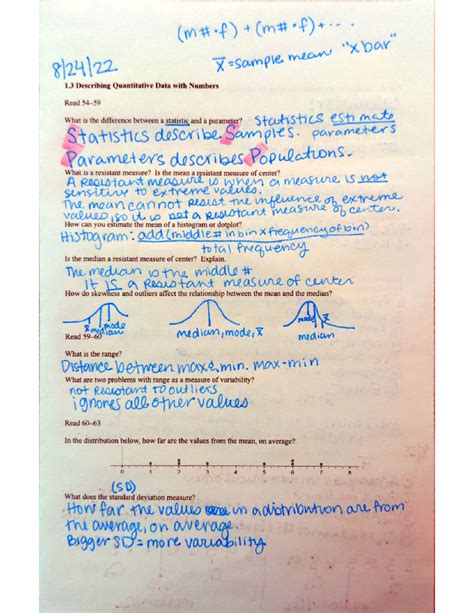 (m# · f) + (m# · f) + ...
8/24/22
x̄ = sample mean "x bar"
1.3 Describing Quantitative Data with Numbers
Read 54-59
What is the difference between a statistic and a parameter? Statistics estimate
Statistics describe Samples. parameters
Parameters describes Populations.
What is a resistant measure? Is the mean a resistant measure of center?
A Resistant measure is when a measure is not
sensitive to extreme values.
The mean cannot resist the influence of extreme
values, so it is not a resistant measure of center.
How can you estimate the mean of a histogram or dotplot?
Histogram: add(middle # in bin x frequency of bin)
total frequency
Is the median a resistant measure of center? Explain.
The median is the middle #
It is a resistant measure of center
How do skewness and outliers affect the relationship between the mean and the median?
x̄ mode
median
median, mode, x̄
x̄
median
Read 59-60
What is the range?
Distance between max & min. max-min
What are two problems with range as a measure of variability?
not resistant to outliers
ignores all other values
Read 60-63
In the distribution below, how far are the values from the mean, on average?
0 1 2 3 4 5 6 7 8
(SD)
What does the standard deviation measure?
How far the values in a distribution are from
the average, on average.
Bigger SD = more variability.